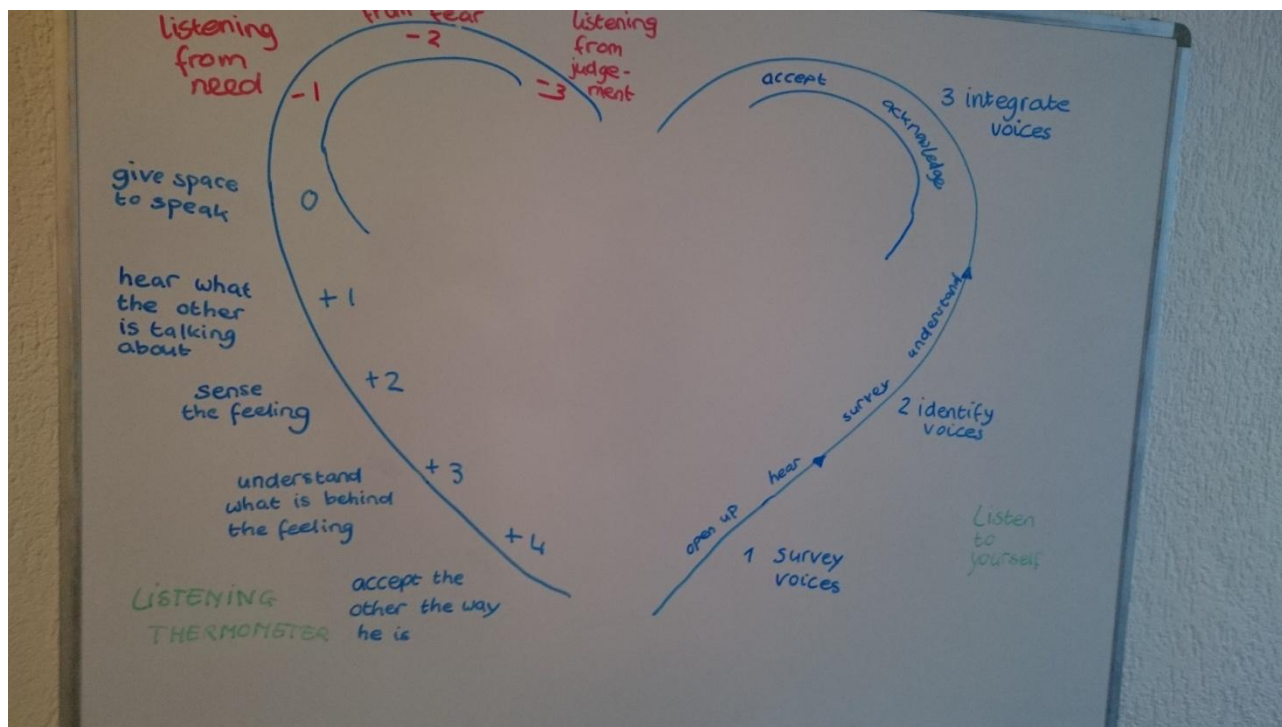 listening
from
need
-1
from fear
-2
listening
from
judge-
ment
-3
give space
to speak
0
hear what
the other
is talking
about
+1
sense
the feeling
+2
understand
what is behind
the feeling
+3
accept the
other the way
he is
+4
LISTENING
THERMOMETER
accept
acknowledge
3 integrate
voices
understand
survey
2 identify
voices
hear
open up
1 survey
voices
Listen
to
yourself